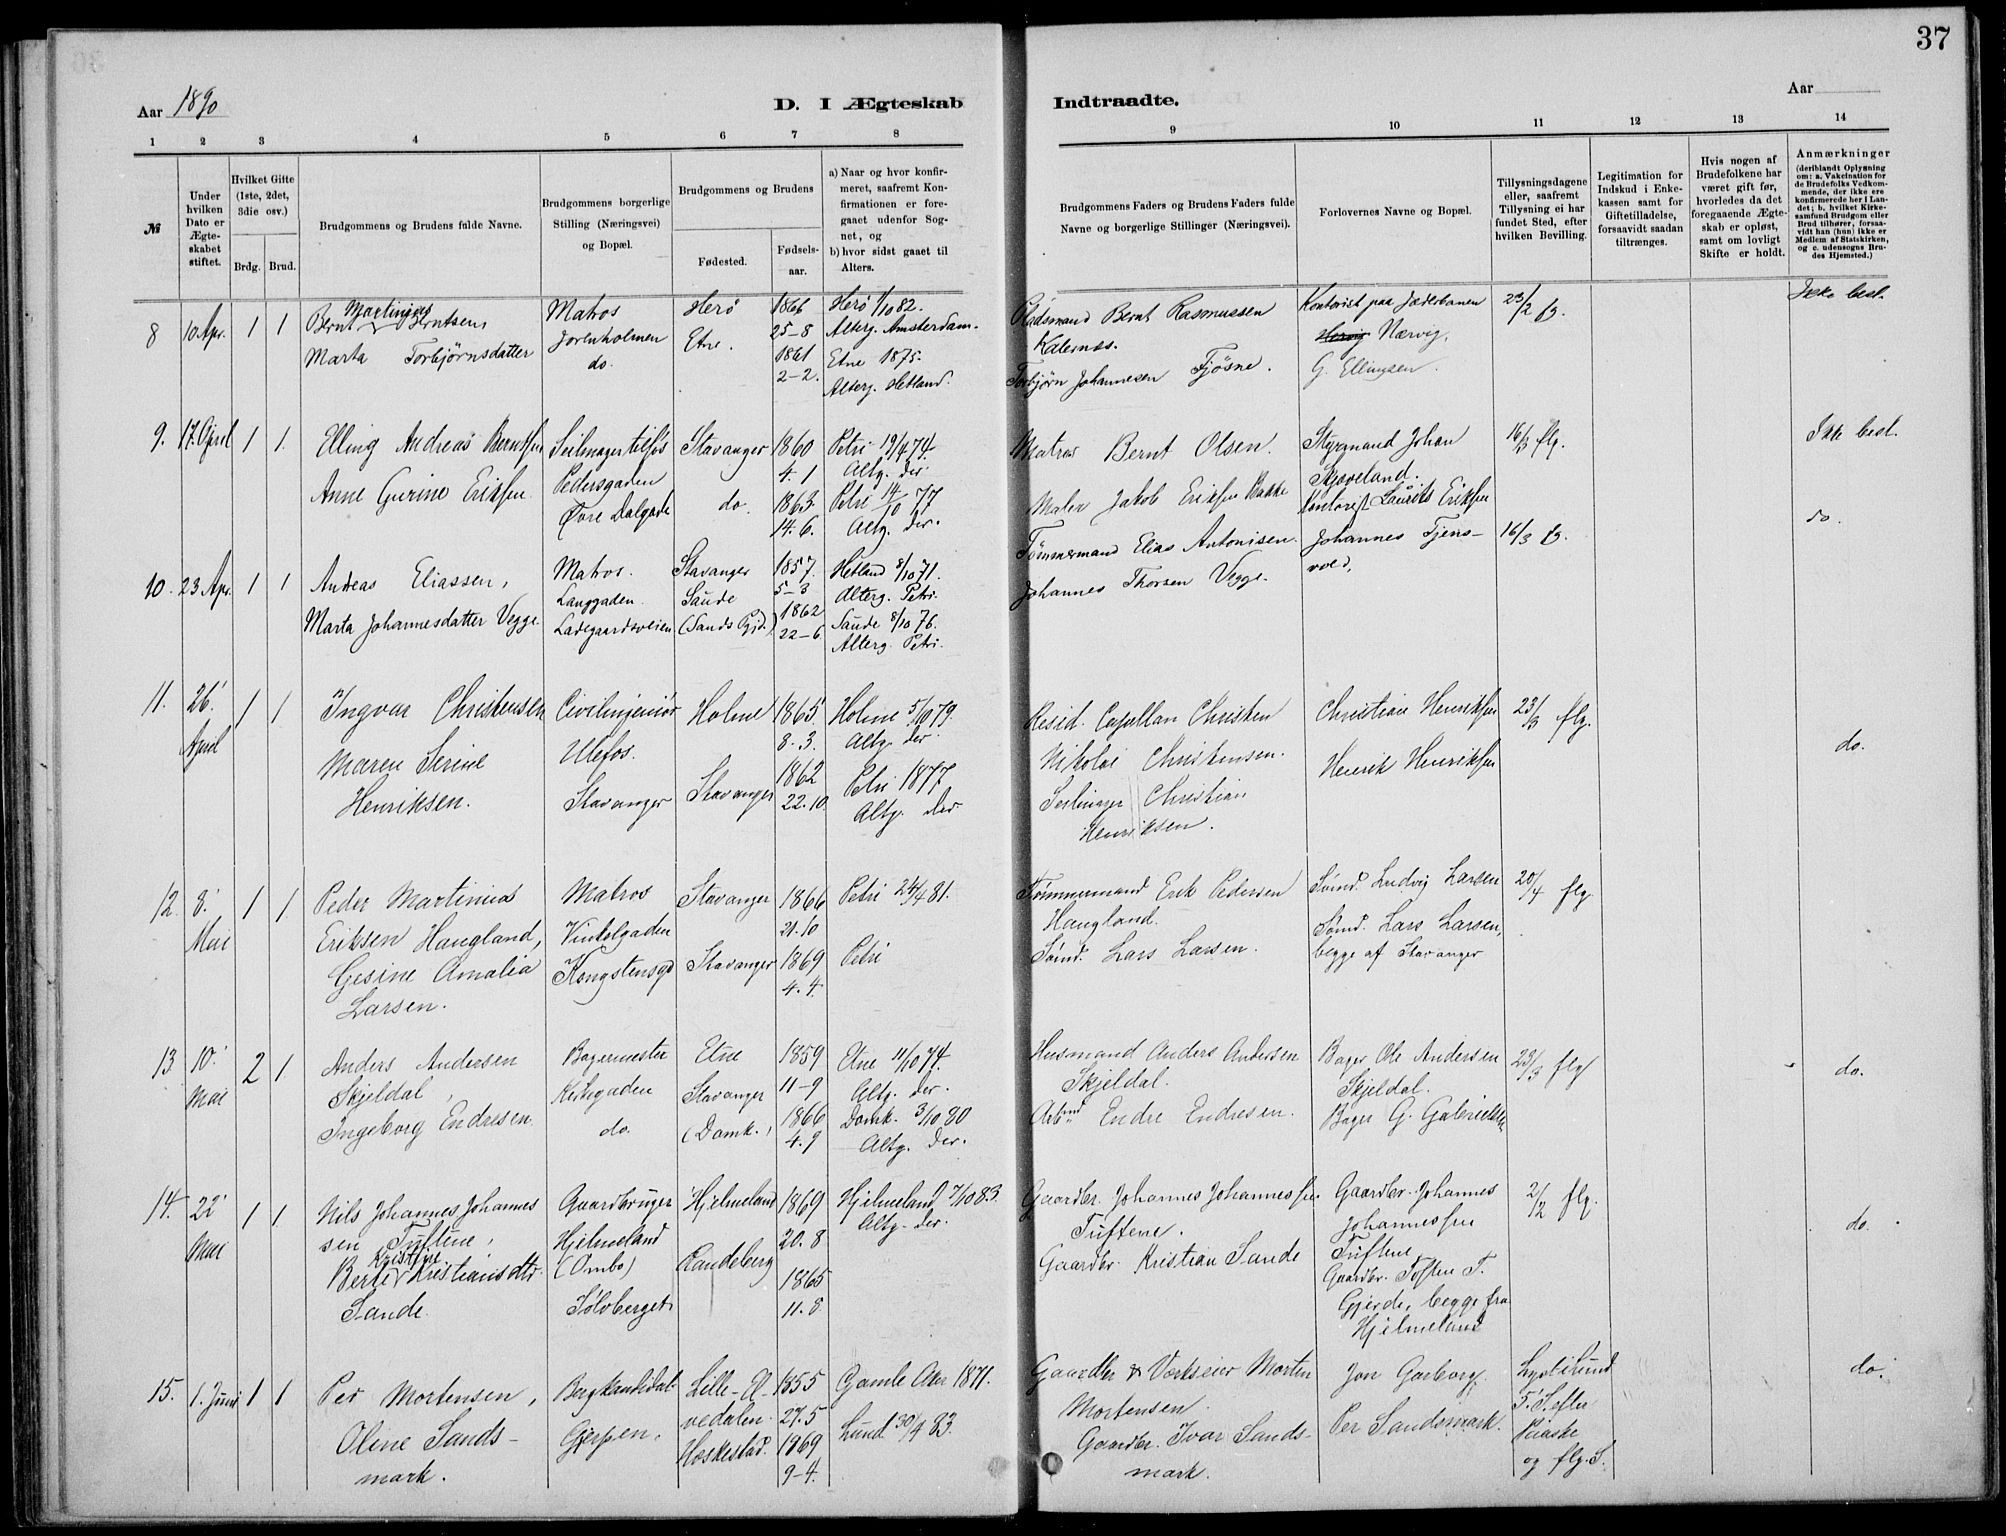 37
Aar 1890
D. I Ægteskab
Indtraadte.
Aar
1 2 3 4 5 6 7 8 9 10 11 12 13 14
№
Under hvilken Dato er Ægteskabet stiftet.
Hvilket Gifte (1ste, 2det, 3die osv.)
Brdg. Brud.
Brudgommens og Brudens fulde Navne.
Brudgommens borgerlige Stilling (Næringsvei) og Bopæl.
Brudgommens og Brudens
Fødested.
Fødselsaar.
a) Naar og hvor konfirmeret, saafremt Konfirmationen er foregaaet udenfor Sognet, og
b) hvor sidst gaaet til Alters.
Brudgommens Faders og Brudens Faders fulde Navne og borgerlige Stillinger (Næringsvei).
Forlovernes Navne og Bopæl.
Tillysningsdagene eller, saafremt Tillysning ei har fundet Sted, efter hvilken Bevilling.
Legitimation for Indskud i Enkekassen samt for Giftetilladelse, forsaavidt saadan tiltrænges.
Hvis nogen af Brudefolkene har været gift før, hvorledes da det foregaaende Ægteskab er opløst, samt om lovligt Skifte er holdt.
Anmærkninger
(deriblandt Oplysning om: a. Vakcination for de Brudefolks Vedkommende, der ikke ere konfirmerede her i Landet; b. hvilket Kirkesamfund Brudgom eller Brud tilhører, forsaavidt han (hun) ikke er Medlem af Statskirken, og c. udensogns Brudes Hjemsted.)
8 10 Apr. 1 1
Bernt Martinius Berntsen,
Marta Torbjørnsdatter
Matros
Jorenholmen
do.
Herø
Etne.
1866
25-8
1861
2-2.
Herø 1/10 82.
Alterg. Amsterdam.
Etne 1875.
Alterg. Hetland.
Bernt Rasmussen
Torbjørn Johannesen Tjøsne.
Kontorist paa Jæderbanen
Nærvig,
G. Ellingsen.
23/2 fg.
Ikke besl.
9. 17. April 1 1.
Elling Andreas Berntsen
Anne Gurine Eriksen
Seilmagertilfos
Pedersgaden
Øvre Dalgade
Stavanger
do.
1860
4.1
1863.
14.6.
Petri 19/4 74.
Altg. der.
Petri 14/10 77
Altg. der.
Matros Bernt Olsen.
Maler Jakob Eriksen Bakke
Styrmand Johan
Skjæveland.
Kontorist Laurits Eriksen
16/3 flg.
Ikke besl.
do.
10. 23 Apr. 1 1
Andreas Eliassen,
Marta Johannesdatter Vegge.
Matros.
Langgaden.
Ladegaardsveien
Stavanger
Saude
(Sands Pgjd.)
1857.
5-3
1862
22-6
Hetland 8/10 71.
Alterg. Petri.
Saude 8/10 76.
Alterg. Petri.
Tømmermand Elias Antonisen.
Johannes Thorsen Vegge.
Johannes Tjens-
vold,
16/3 fg.
11. 26. April 1 1.
Ingvar Christensen
Maren Serine
Henriksen.
Civilingeniør
Ulefos.
Stavanger
Holme
Stavanger
1865
8.3.
1862
22.10
Holme 5/10 79.
Altg. der.
Petri 1877
Altg. der
Resid. Capellan Christen
Nikolai Christensen.
Seilmager Christian
Henriksen.
Christian Henriksen
Henrik Henriksen
23/3 flg.
do.
12. 8. Mai 1 1.
Peder Martinius
Eriksen Haugland,
Gesine Amalia
Larsen.
Matros
Vinkelgaden
Kongstensgd
Stavanger
Stavanger
1866
21.10
1869
4.4.
Petri 24/4 81.
Petri
Tømmermand Erik Pedersen
Haugland.
Sømd. Lars Larsen.
Sømd. Ludvig Larsen
Sømd. Lars Larsen,
begge af Stavanger
20/4 flg.
13 10. Mai 2 1
Anders Andersen
Skjeldal,
Ingeborg Endresen
Bagermester
Kirkegaden
do.
Etne
Stavanger
(Domk.)
1859
11-9
1866
4.9
Etne 11/10 74.
Altg. der.
Domk. 3/10 80
Altg. der.
Husmand Anders Andersen
Skjeldal.
Arbmd Endre Endresen.
Bager Ole Andersen
Skjeldal.
Bager G. Gabrielsen
23/3 flg
do.
14. 22 Mai 1 1.
Nils Johannes Johannes
sen Tuftene,
Berte Kristine Kristiansdtr.
Sande.
Gaardbruger
Hjelmeland
(Ombo)
Sølvberget
Hjelmeland
Randeberg
1869
20.8
1865
11.8
Hjelmeland 7/10 83.
Altg. der.
Gaardbr. Johannes Johannessen
Tuftene.
Gaardbr. Kristian Sande
Gaardbr. Johannes
Johannessen
Tuftene,
Gaardbr. Toften T.
Gjerde, begge fra
Hjelmeland
2/12 flg.
do.
15. 1. Juni 1 1
Per Mortensen,
Oline Sands-
mark.
Bergkandidat
Gjerpen.
Lille-El-
vedalen.
Heskestad.
1855
27.5
1869
9-4.
Gamle Aker 1871.
Lund 30/9 83.
Gaardbr & Værkseier Morten
Mortensen.
Gaardbr. Ivar Sands-
mark.
Jon Garborg,
Per Sandsmark.
Lyst i Lund
Paaske
og flg. S.
do.